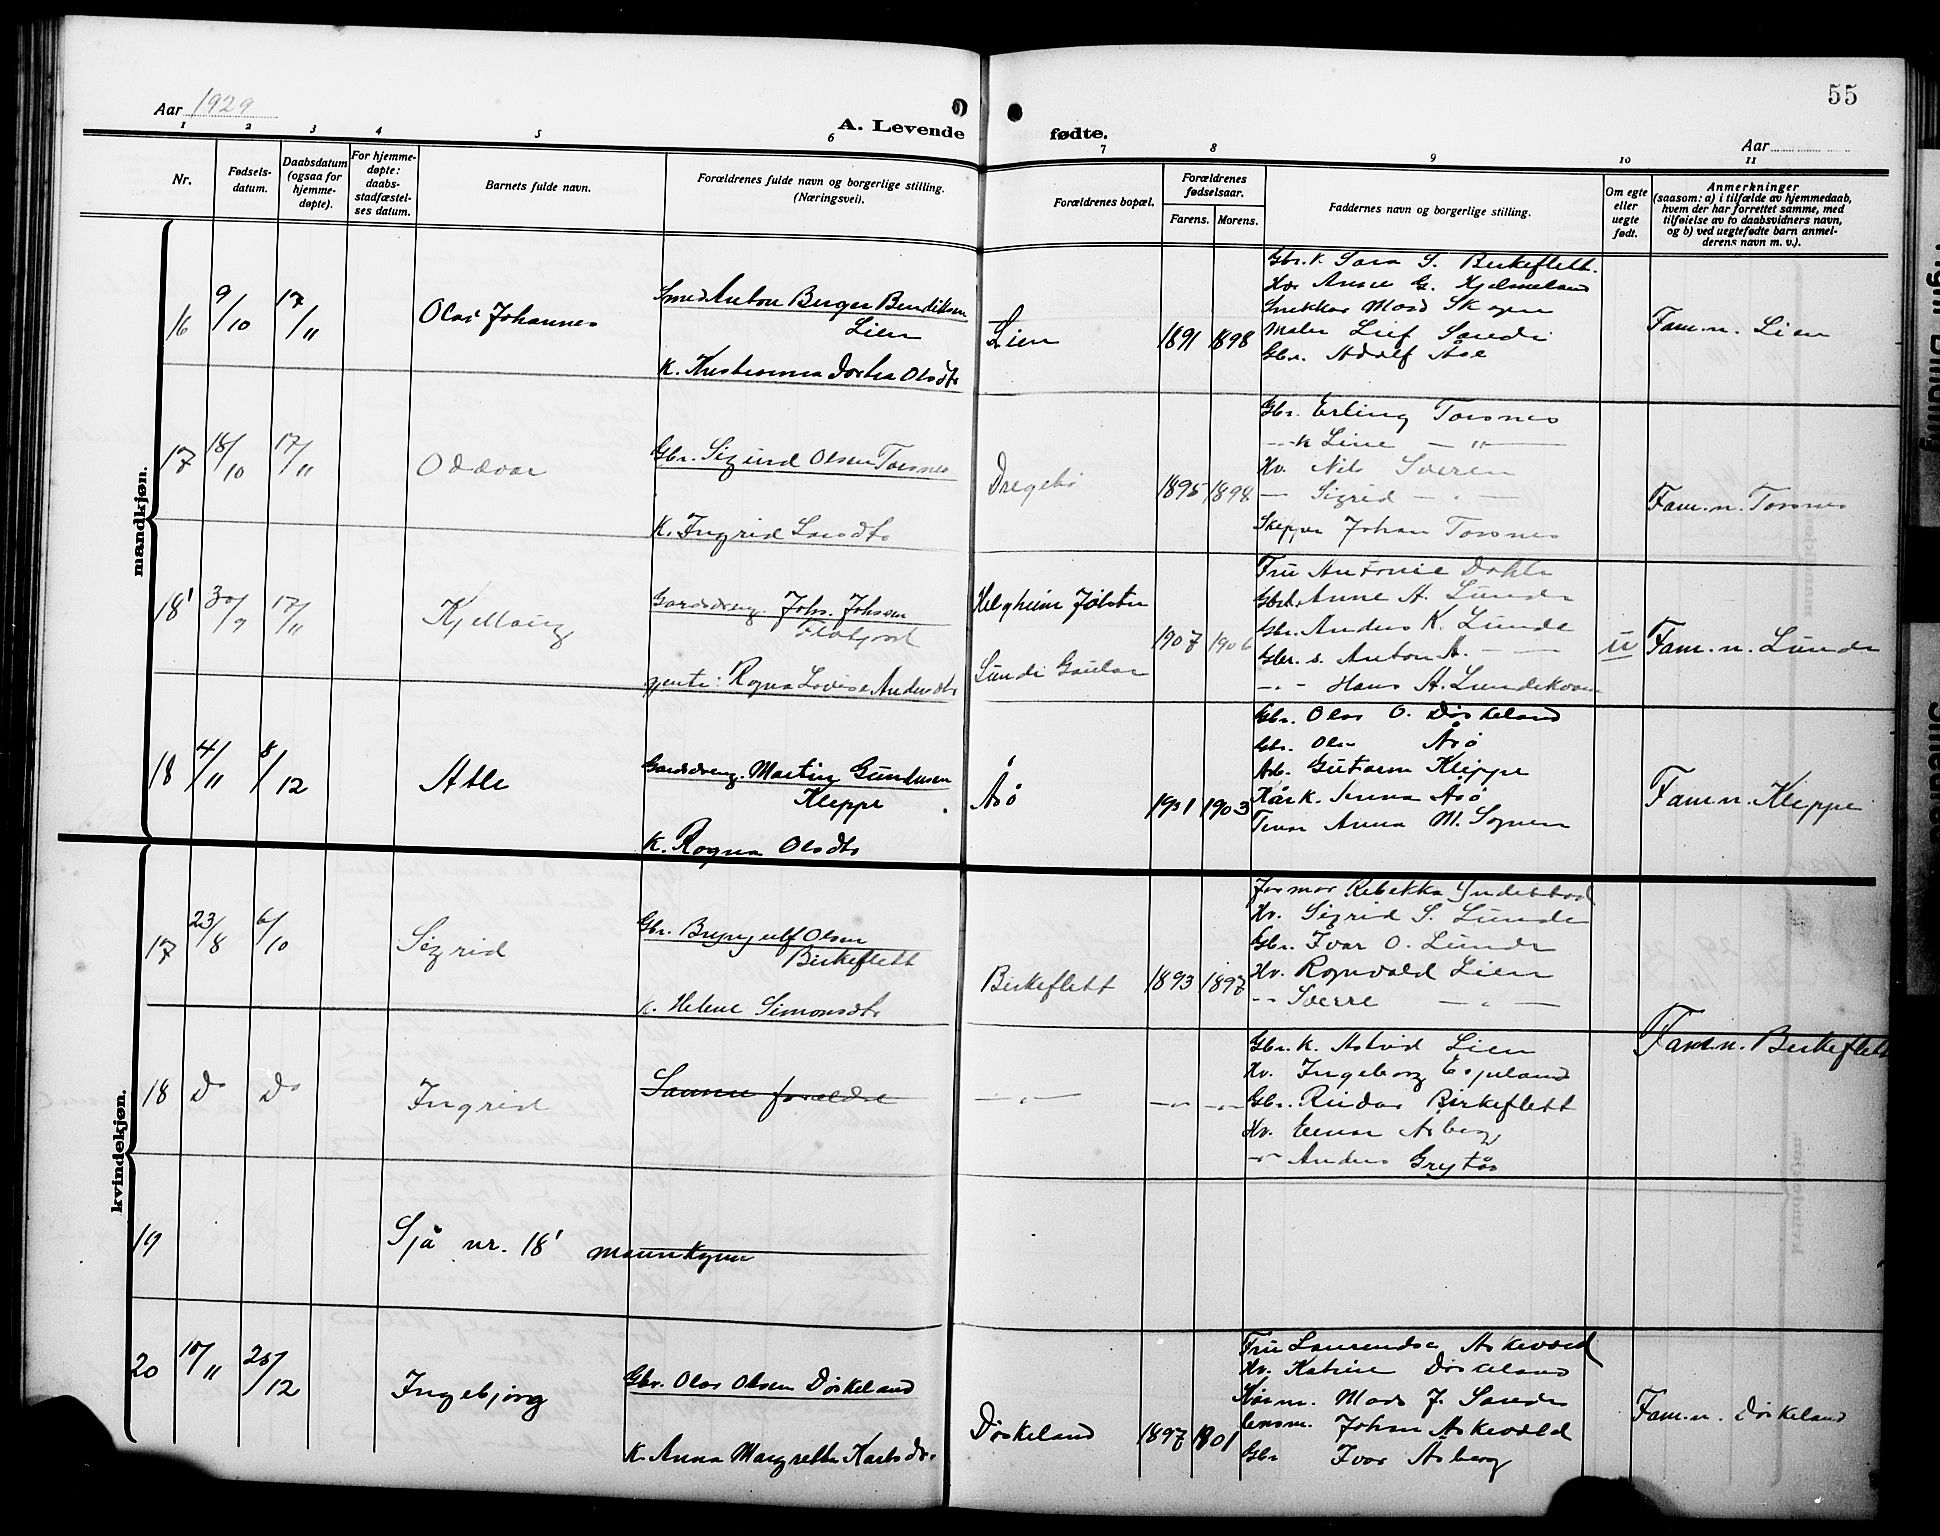 55
Aar 1929
A. Levende fødte.
Aar
1 2 3 4 5 6 7 8 9 10 11
Nr.
Fødsels-
datum.
Daabsdatum
(ogsaa for
hjemme-
døpte).
For hjemme-
døpte:
daabs-
stadfæstel-
ses datum.
Barnets fulde navn.
Forældrenes fulde navn og borgerlige stilling.
(Næringsvei).
Forældrenes bopæl.
Forældrenes
fødselsaar.
Farens. Morens.
Faddernes navn og borgerlige stilling.
Om egte
eller
uegte
født.
Anmerkninger
(saasom: a) i tilfælde av hjemmedaab,
hvem der har forrettet samme, med
tilføielse av to daabsvidners navn,
og b) ved uegtefødte barn anmel-
derens navn m. v.).
mandkjøn.
16 9/10 17/11 Olav Johannes
Smed Anton Berger Bendiksen
Lien
K. Kristianna Dortea Olsdtr
Lien 1891 1898
Gbr. K. Sara S. Birkeflett.
Hv. Anne G. Hjelmeland
Snekker Mons Skogen
Maler Leif Sande
Gbr. Adolf Åse
Fam.n. Lien
17 18/10 17/11 Oddvar
Gbr. Sigurd Olsen Torsnes
K. Ingrid Larsdtr
Dregebø 1895 1898
Gbr. Erling Torsnes
— K Line — " —
Hv. Nils Sveen
— Sigrid — " —
Skipper Johan Torsnes
Fam.n. Torsnes
18¹ 30/9 17/11 Kjellaug
Gardsdreng. Johs. Johssen
Flatjord
gente: Ragna Lovise Andersdtr
Helgheim Jølster
Lunde Gaular
1907 1906
Fru Antonie Dahle
Gbr.k. Anne A. Lunde
Gbr. Anders K. Lunde
Gbr. s. Anton A. — —
— " — Hans A. Lundekvam
u
Fam.n. Lunde
18 4/11 8/12 Atle
Gardsdreng. Martin Gundersen
Kleppe
K. Ragna Olsdtr
Åsø 1901 1903
Gbr. Olav O. Døskeland
Gbr. Ole Åsø
Arb. Gutorm Kleppe
Kårk. Jenna Åsø
Tenar Anna M. Sognen
Fam.n. Kleppe
kvindekjøn.
17 23/8 6/10 Sigrid
Gbr. Brynjulf Olsen
Birkeflett
K. Helene Simonsdtr
Birkeflett 1893 1897
Jormor Rebekka Yndestad
Hv. Sigrid S. Lunde
Gbr. Ivar O. Lunde
Hv. Rognvald Lien
— Sverre — " —
Fam.n. Birkeflett
18 Do Do Ingrid
Samme foreldre
— " — — " — — " —
Gbr. K. Astrid Lien
Hv. Ingeborg Espeland
Gbr. Reidar Birkeflett
Hv. Einar Åsberg
— " — Anders Grytås
19 Sjå nr. 18¹ mannkynn
20 10/11 26/12 Ingebjørg
Gbr. Olav Olsen Døskeland
K. Anna Margrethe Karlsdtr.
Døskeland 1897 1901
Fru Laurendse Askevold
Hv. Katrine Døskeland
Kårm. Mons J. Sande
Lensm. Johan Askevold
Gbr Ivar Åsberg
Fam.n. Døskeland